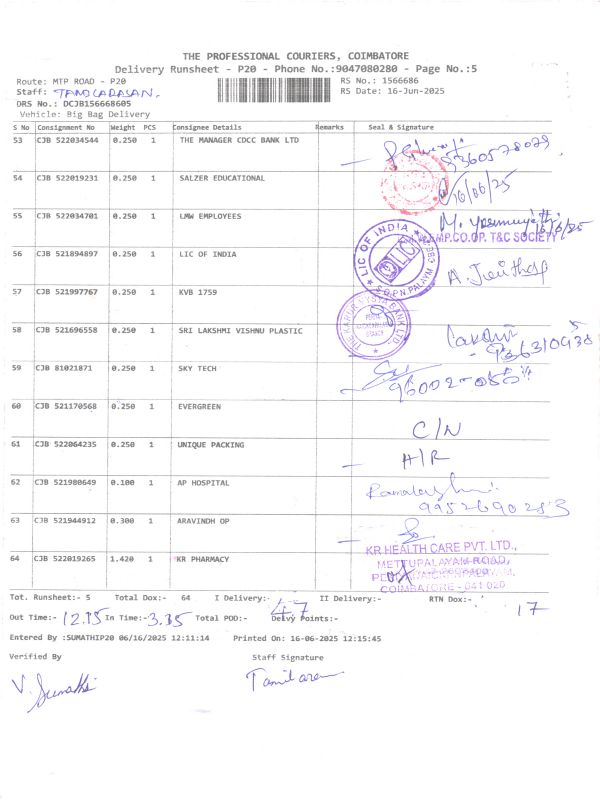 THE PROFESSIONAL COURIERS, COIMBATORE
Delivery Runsheet - P20 - Phone No.:9047080280 - Page No.:5
Route: MTP ROAD - P20
RS No.: 1566686
Staff:
RS Date: 16-Jun-2025
DRS No.: DCJB156668605
Vehicle: Big Bag Delivery
S No Consignment No Weight PCS Consignee Details Remarks Seal & Signature
53 CJB 522034544 0.250 1 THE MANAGER CDCC BANK LTD
54 CJB 522019231 0.250 1 SALZER EDUCATIONAL 16/06/25
55 CJB 522034701 0.250 1 LMW EMPLOYEES M.
CO.OP. T&C SOCIETY
56 CJB 521894897 0.250 1 LIC OF INDIA
LIC OF INDIA
LIC
57 CJB 521997767 0.250 1 KVB 1759
THE KARUR VYSYA BANK LTD
58 CJB 521696558 0.250 1 SRI LAKSHMI VISHNU PLASTIC
59 CJB 81021871 0.250 1 SKY TECH
60 CJB 521170568 0.250 1 EVERGREEN C/N
61 CJB 522064235 0.250 1 UNIQUE PACKING H/R
62 CJB 521980649 0.100 1 AP HOSPITAL
63 CJB 521944912 0.300 1 ARAVINDH OP
64 CJB 522019265 1.420 1 KR PHARMACY
KR HEALTH CARE PVT. LTD.,
METTUPALAYAM ROAD,
COIMBATORE - 641 020
Tot. Runsheet:- 5 Total Dox:- 64 I Delivery:- 47 II Delivery:- RTN Dox:- 17
Out Time:- 12.15 In Time:- 3.35 Total POD:- Delvy Points:-
Entered By :SUMATHIP20 06/16/2025 12:11:14 Printed On: 16-06-2025 12:15:45
Verified By Staff Signature
V. Sumathi